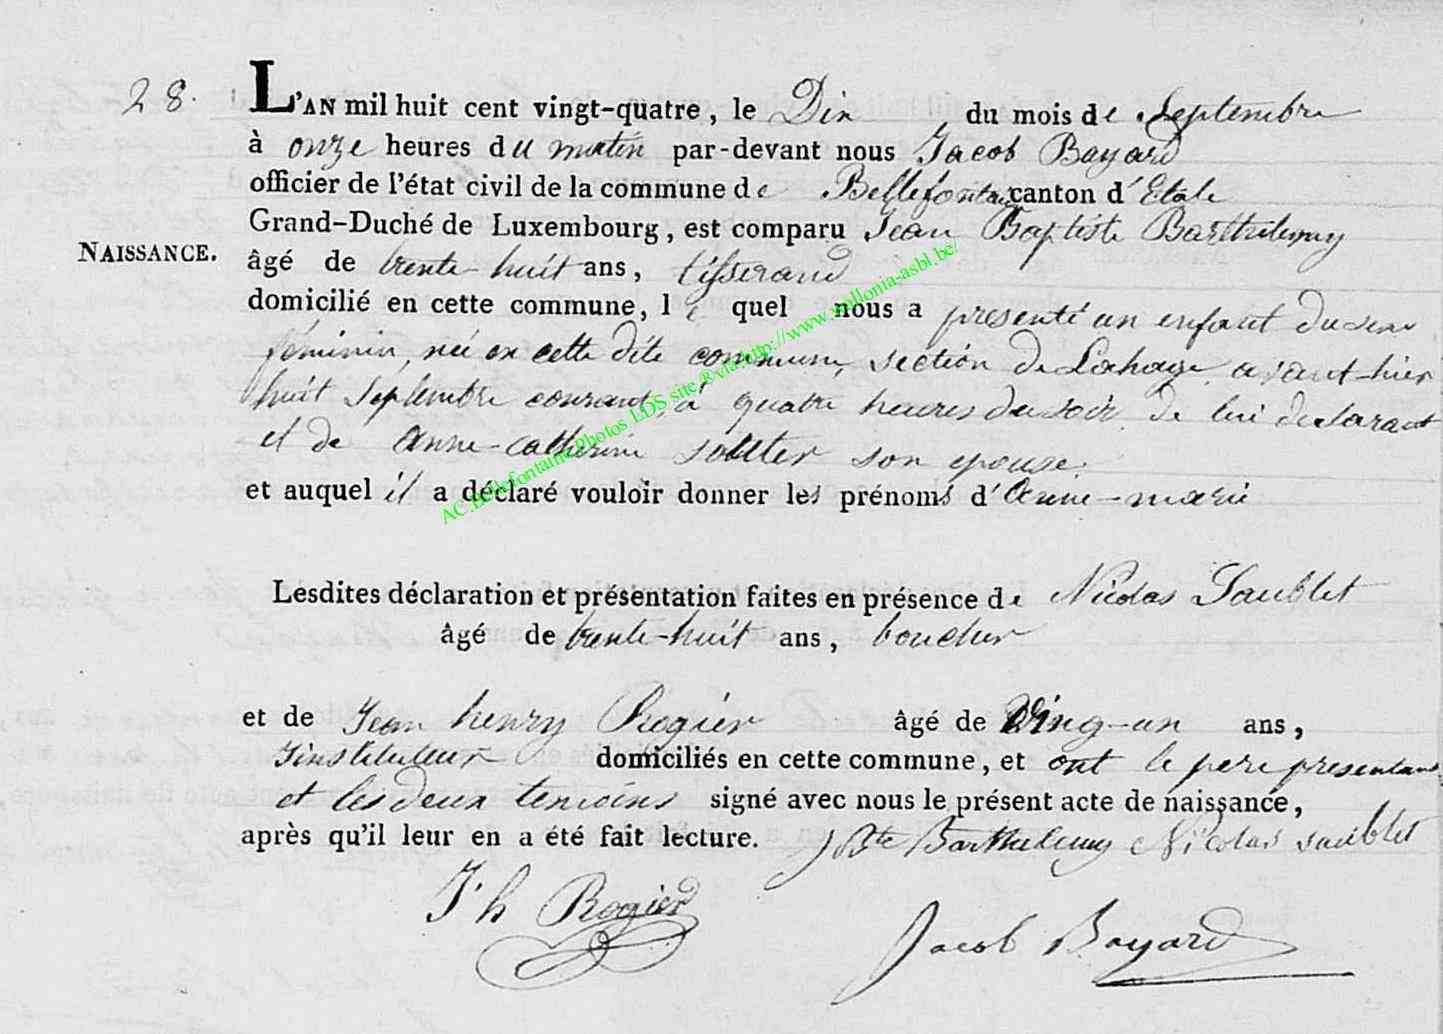 28.
L'AN mil huit cent vingt-quatre, le Dix du mois de Septembre
à onze heures du matin par-devant nous Jacob Bayard
officier de l'état civil de la commune de Bellefontaine canton d'Etale
Grand-Duché de Luxembourg, est comparu Jean Baptiste Barthelemy
NAISSANCE.
âgé de trente-huit ans, tisserand
domicilié en cette commune, le quel nous a presenté un enfant du sexe
féminin, née en cette dite commune, section de Lahage, avant-hier
huit Septembre courant, à quatre heures du soir, de lui declarant
et de Anne-catherine son epouse.
et auquel il a déclaré vouloir donner les prénoms d'Anne-marie
Lesdites déclaration et présentation faites en présence de Nicolas Saublet
âgé de trente-huit ans, boucher
et de Jean henry Rogier âgé de Ving-un ans,
Jinstituteur domiciliés en cette commune, et ont le pere presentant
et les deux temoins signé avec nous le présent acte de naissance,
après qu'il leur en a été fait lecture. J Bte Barthelemy Nicolas saublet
J. h Rogier
Jacob Bayard
AC.Bellefontaine Photos LDS site ®via:http://www.wallonia-asbl.be/